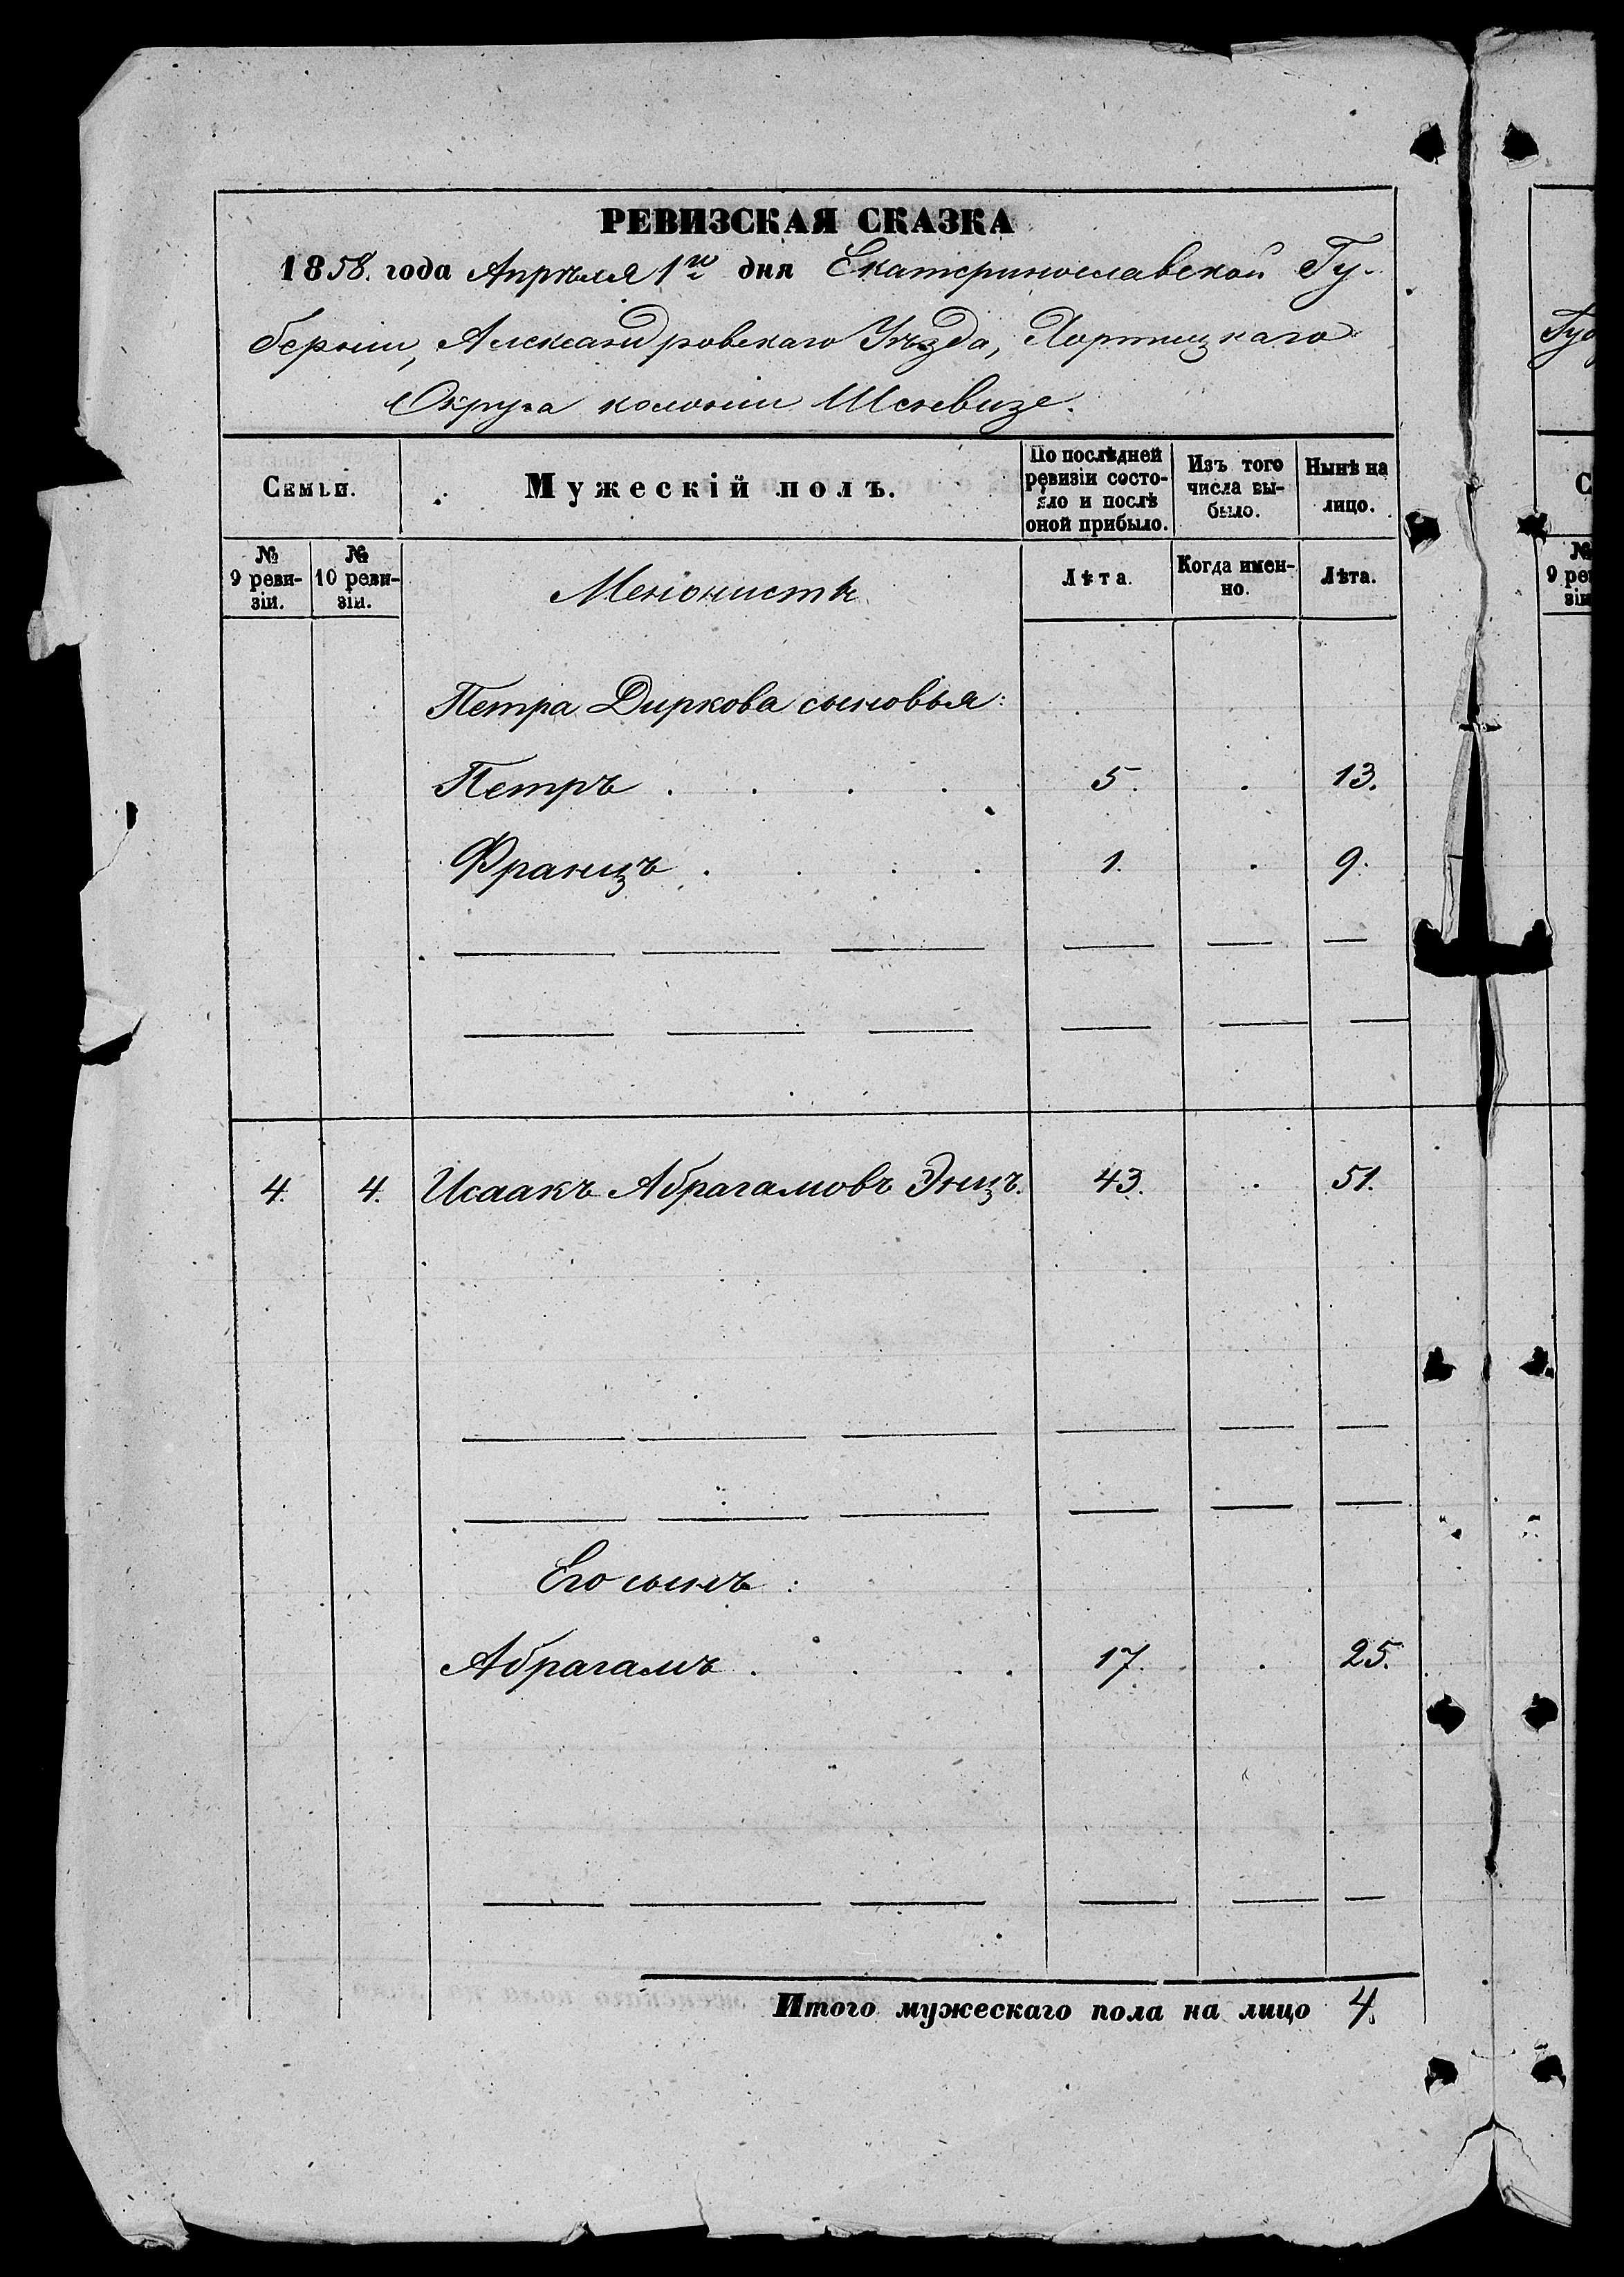 РЕВИЗСКАЯ СКАЗКА
1858. года Апрѣля 1го дня Екатеринославской Гу-
берніи, Александровскаго Уѣзда, Хортицкаго
Округа колоніи Шенвизе.
Семьи.
Мужескій полъ.
По послѣдней ревизіи состояло и послѣ оной прибыло.
Изъ того числа выбыло.
Нынѣ на лицо.
№ 9 ревизіи.
№ 10 ревизіи.
Менонистъ
Лѣта.
Когда именно.
Лѣта.
Петра Диркова сыновья:
Петръ . . . . 5. . 13.
Францъ . . . . 1. . 9.
4. 4. Исаакъ Абрагамовъ Энцъ. 43. . 51.
Его сынъ:
Абрагамъ . . . . 17. . 25.
Итого мужескаго пола на лицо 4.
Губ
С
№
9 ре
зі